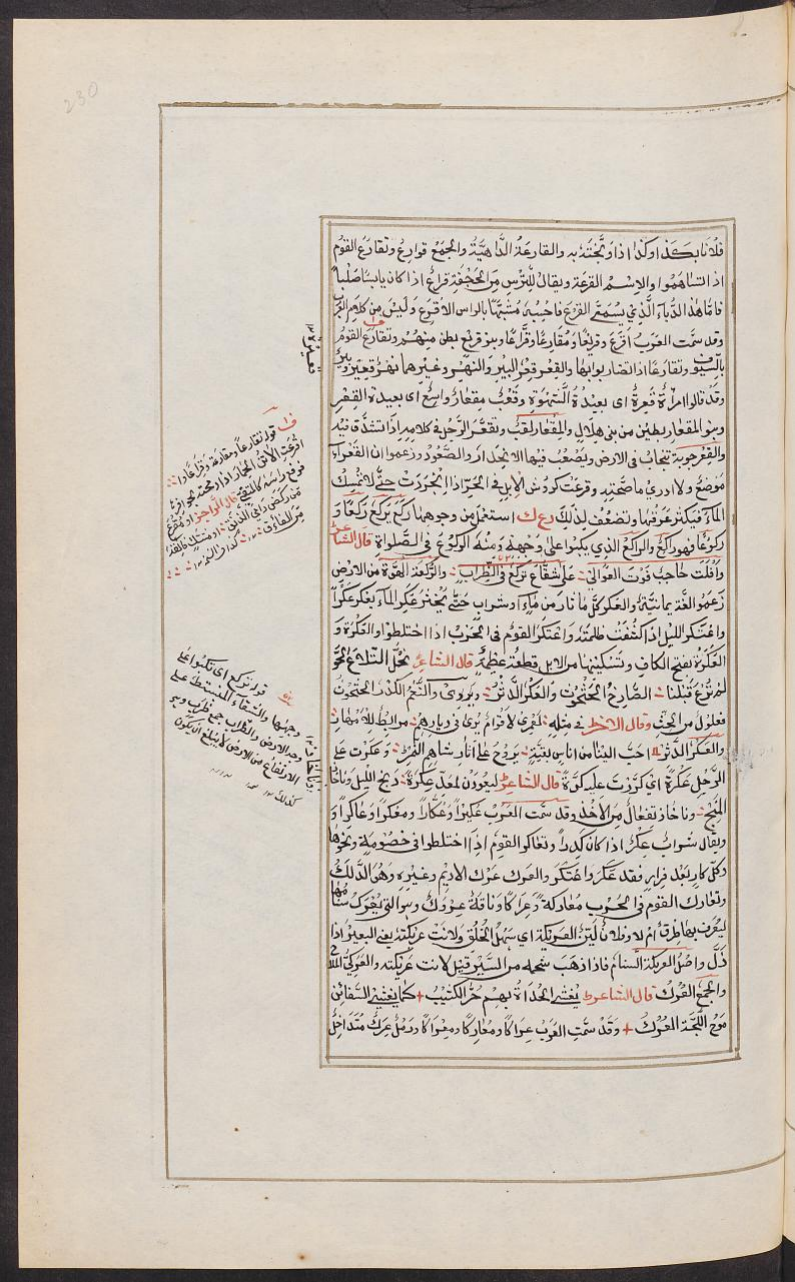 230
فلانا بكذا وكذا اذا وبخته به والقارعة الداهية والجمع قوارع وتقارع القوم
اذ التساهموا والاسم القرعة ويقال للترس من الحجفة قراع اذا كان يابسا صلبا
فاما هذا الدباء الذي يسمى القرع فاحسبه مشبها بالراس الاقرع وليس من كلام العرب
وقد سمت العرب اقرع وقريعا ومقارعا وقراعا وبنو قريع بطن منهم وتقارع القوم
بالسيوف وتقارعا اذا تضاربوا بها والقعر قعر البير والنهر وغيرهما نهر قعير وبير
وقد قالوا امراة قعرة اي بعيدة الشهوة وقعب مقعار واسع اي بعيدة القعر
وبنو المقعار بطين من بني هلال والمقعار لقب وتقعر الرجل في كلامه اذا تشدق فيه
والقعر جوبة تنجاب في الارض ويصعب فيها الانحدار والصعود وزعموا ان القعراء
موضع ولا ادري ما صحته وقرعت كروش الابل في الحر اذا انجردت حتى لا تمسك
الماء فيكثر عرقها وتضعف لذلك رع ك استعمل من وجوهها ركع يركع ركعا و
ركوعا فهو راكع والراكع الذي يكبوا على وجهه ومنه الركوع في الصلواة قال الشاعر
وافلت حاجب فوت العوالي على شقاء تركع في الظراب والركعة الهوة من الارض
زعموا لغة يمانية والعكر كل ما ثار من ماء او شراب حتى يخثر عكر الماء يعكر عكرا
واعتكر الليل اذا كثفت ظلمته واعتكر القوم في الحرب اذا اختلطوا والعكرة و
العكرة بفتح الكاف وتسكينها من الابل قطعة عظيمة قال الشاعر نحل التلاع الحو
لم ترع قبلنا الصارخ الحثحوث والعكر الدثر ويروى والنعم الكدر الحثحوث
فعلول من الحث وقال الاخر في مثله لعمري لاقوام يرى في ديارهم مرابط للامهار
والعكر الدثر احب الينا من اناس بقنة يروح على اثار شاهم النمر وعكرت على
الرجل عكرة اي كررت عليه كرة قال الشاعر ليعودن لمعد عكرة دلج الليل وتاخاذ
المنح وتاخاذ تفعال من الاخذ وقد سمت العرب عكيرا وعكارا ومعكرا وعاكرا و
ويقال شراب عكر اذا كان كدرا وتعاكر القوم اذا اختلطوا في خصومة ونحوها
وكل كار بعد فرار فقد عكر واعتكر والعرك عرك الاديم وغيره وهو الدلك
وتعارك القوم في الحرب معاركة وعراكا وناقة عروك وهو التي يعرك سنامها
ليعرف بها طرق ام لا وفلان لين العريكة اي سهل الخلق ولانت عريكة يعني البعير اذا
ذل واصل العريكة السنام فاذا ذهب شحمه من السير قيل لانت عريكته والعركي الملاح
والجمع العرك قال الشاعر يغشى الحداة بهم حر الكثيب كما يغشى السفائن
موج اللجة العرك وقد سمت العرب عراكا ومعاركا ومعراكا ورمل عرك متداخل
ف قوله تقارعا ومقارعة وقراعا و
اقرعت الاتن الحمار اذا رمحته
فرفع راسه قال الراجز او مقرع
من ركضها دامي الذنق
قوله تركع اي تكبوا على
وجهها والشقاء المنبسطة على
وجه الارض والظراب جمع ظرب وهو
الارتفاع من الارض لا يبلغ ان يكون
كذلك